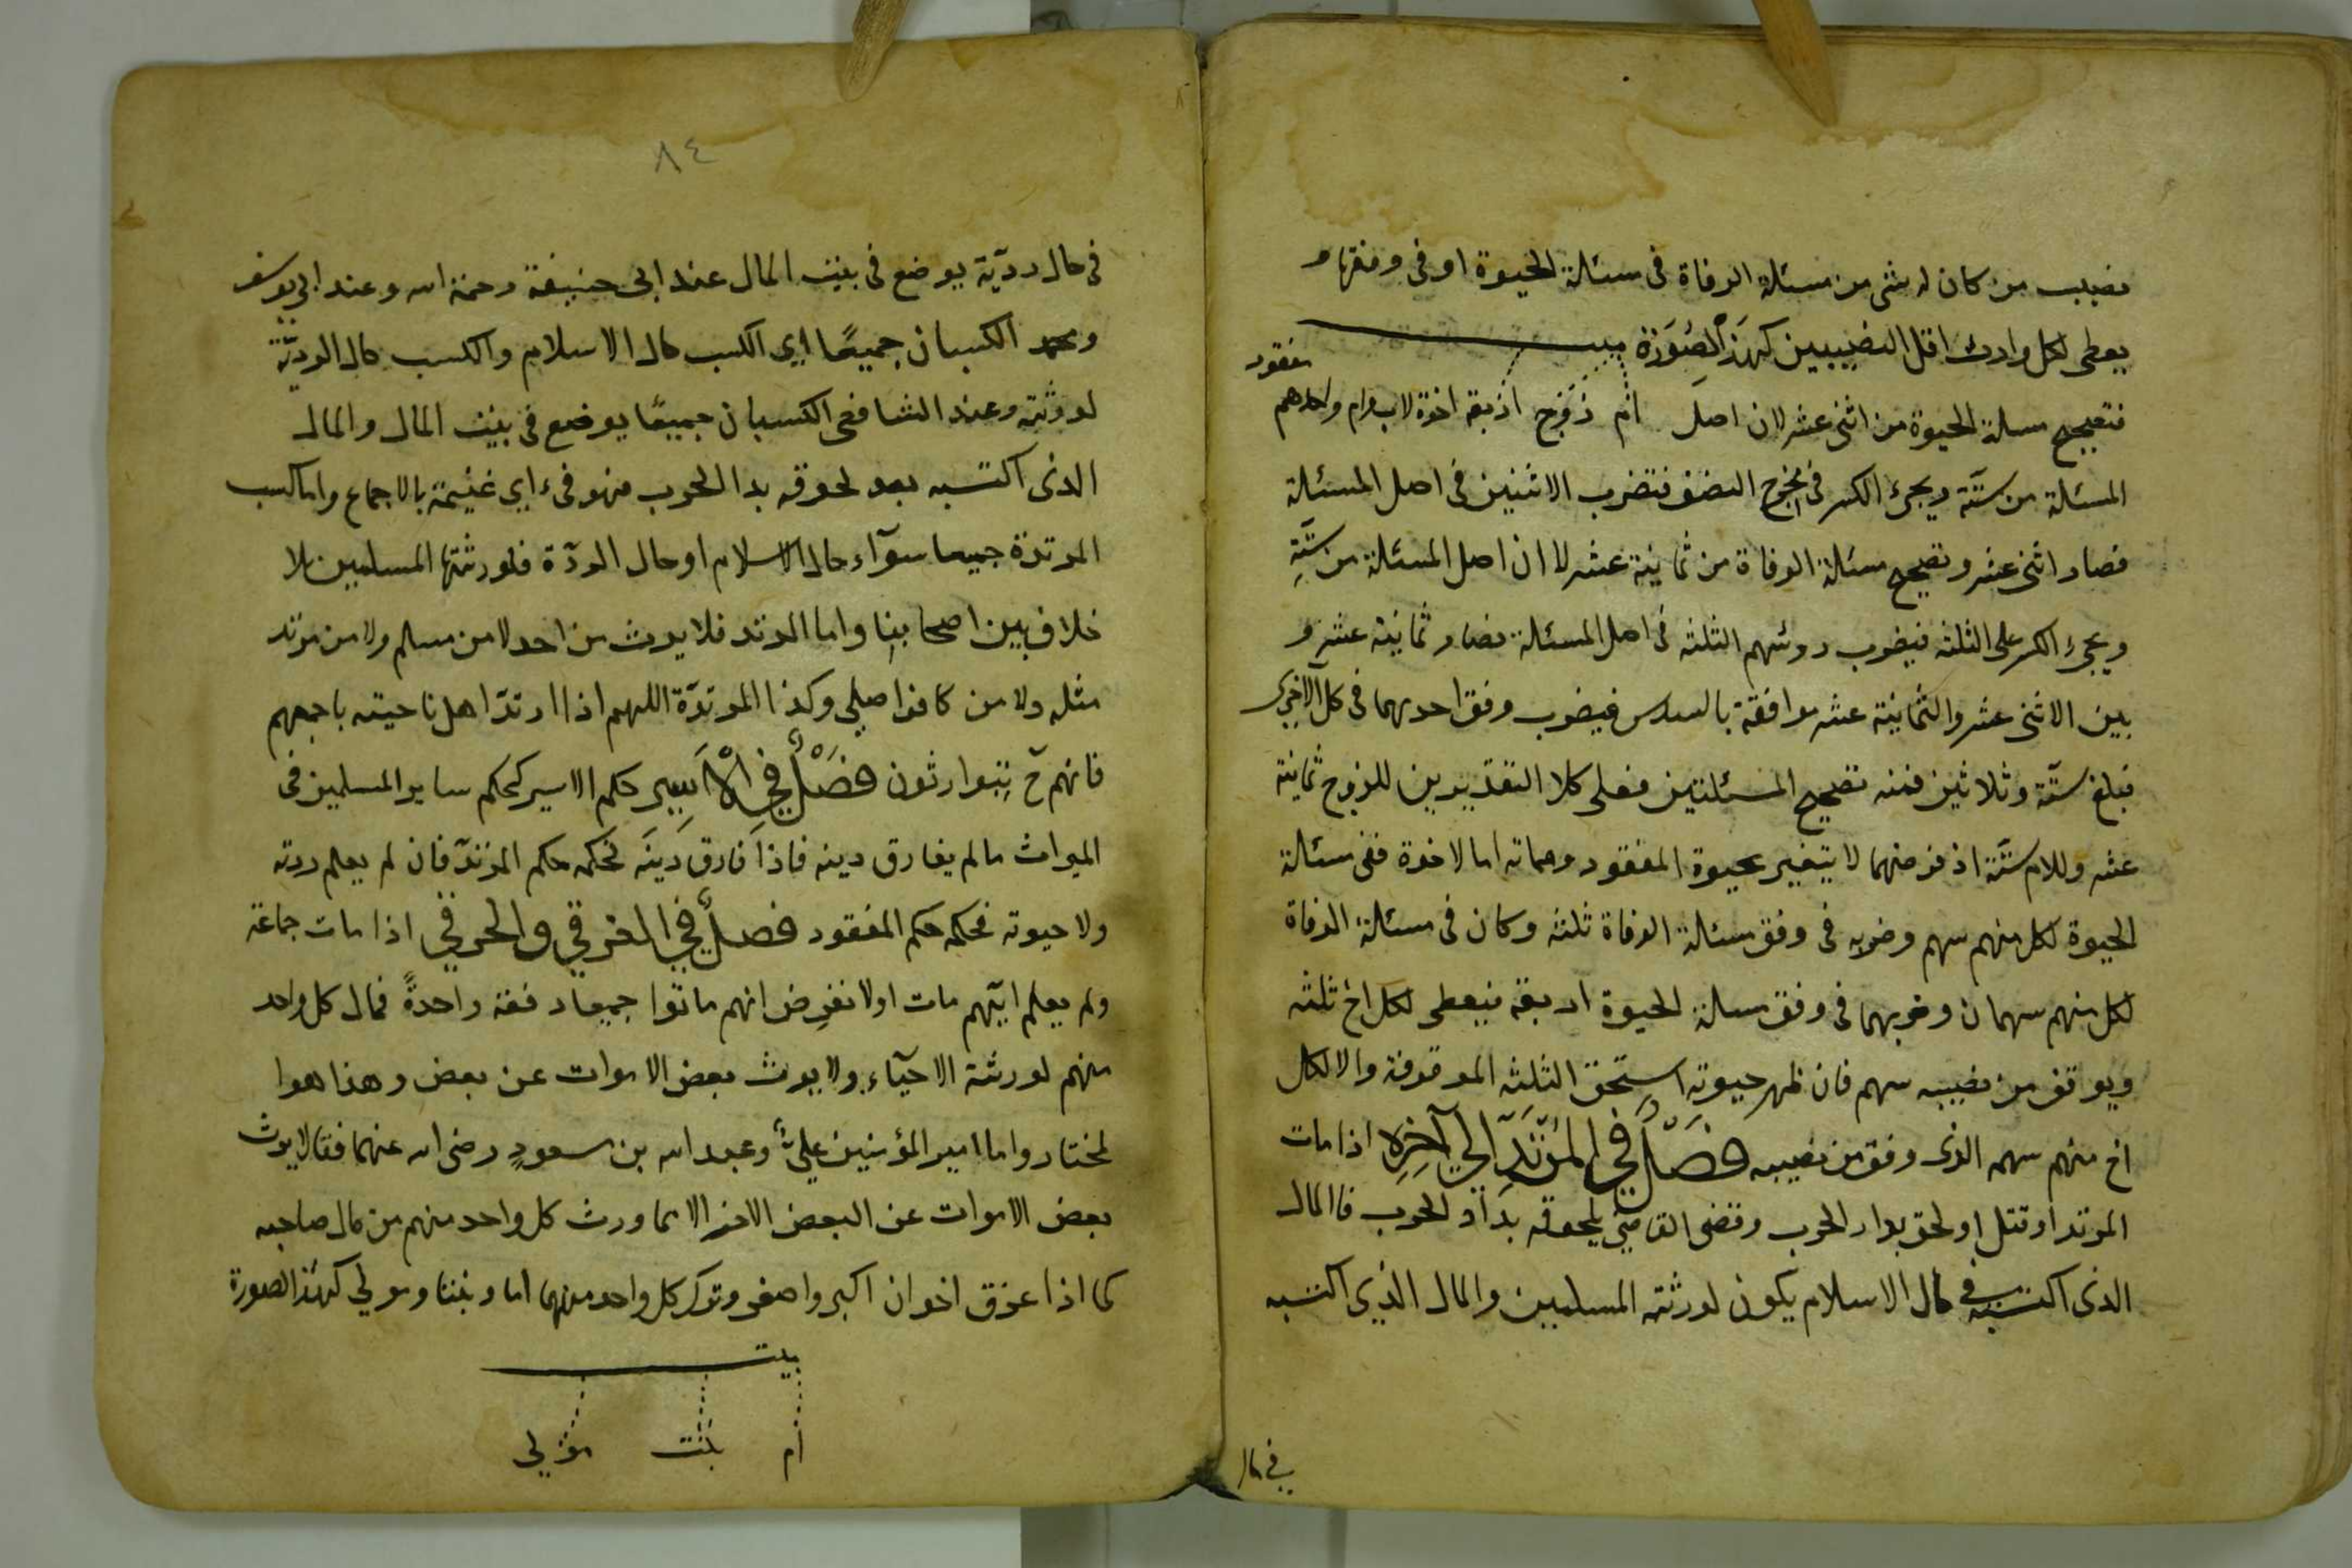 نصيب من كان له شئ من مسئلة الوفاة فى مسئلة الحيوة او فى وفقها و
يعطى لكل وارث اقل النصيبين كهذ الصُوَرَة ميت
مفقود
فتصحيح مسلة الحيوة من اثنى عشر لان اصل ام زوج اربعة اخوة لاب وام واحدهم
المسئلة من ستّة ويجرئ الكسر فى مخرج النصف فتضرب الاثنين فى اصل المسئلة
فصار اثنى عشر وتصحيح مسئلة الوفاة من ثمانية عشر لا ان اصل المسئلة من ستّةِ
ويجرئ الكسر على الثلثه فيضرب روئسهم الثلثه فى اصل المسئلة فصار ثمانية عشر و
بين الاثنى عشر والثمانية عشر موافقة بالسدس فيضرب وفق احديهما فى كل الاخرى
فبلغ ستّة وثلاثين فمنه تصحيح المسئلتين فعلى كلا التقديرين للزوج ثمانية
عشر وللام ستّة اذ فرضهما لا يتغير بحيوة المفقود ومماته اما الاخوة ففى مسئلة
الحيوة لكل منهم سهم وضربه فى وفق مسئلة الوفاة ثلثه وكان فى مسئلة الوفاة
لكل منهم سهمان وضربهما فى وفق مسلة الحيوة اربعة فيعطى لكل اخ ثلثه
ويوقف من نصيبه سهم فان ظهر حيوته استحق الثلثه الموقوفة والا لكل
اخ منهم سهمه الذى وقف من نصيبه فَصَلٌ فى المُرْتَدِّ الي آخِرِه اذا مات
المرتد او قتل او لحق بدار الحرب وقضى القاضى بلحوقه بدار الحرب فالمال
الذى اكتسبه في حال الاسلام يكون لورثته المسلمين والمال الذى اكتسبه
في حال
٨٤
فى حال ردّية يوضع فى بيت المال عند ابى حنيفة رحمة الله وعند ابى يوسف
ومحمد الكسبان جميعًا اي الكسب حال الاسلام والكسب حال الرديّة
لورثته وعند الشافعى الكسبان جميعًا يوضع فى بيت المال والمال
الذى اكتسبه بعد لحوقه بدا الحرب فهو فىء اي غنيمة بالاجماع واما كسب
المرتدة جميعا سوآء حال الاسلام او حال الردّة فلورثتها المسلمين بلا
خلاف بين اصحابنا واما المرتد فلا يرث من احد لا من مسلم ولا من مرتد
مثله ولا من كافر اصلي وكذا المرتدّة اللهم اذا ارتدّ اهل ناحيته باجمعهم
فانهم ح يتوارثون فَصْلٌ فِي الْاَسِيِر حكم الاسير كحكم ساير المسلمين فى
الميراث ما لم يفارق دينه فاذا فارق دينَه فحكمه حكم المرتدّ فان لم يعلم ردته
ولا حيوته فحكمه حكم المفقود فصلٌ في الغرقي والحرقي اذا مات جماعة
ولم يعلم ايّهم مات اولا نفرض انهم ماتوا جميعا دفعة واحدةً فمال كل واحد
منهم لورثة الاحيآء ولا يورث بعض الاموات عن بعض وهذا هوا
لمختار واما امير المؤمنين عليٌّ وعبد الله بن مسعودٍ رضى الله عنهما فقالا يرث
بعض الاموات عن البعض الاخر الا مما ورث كل واحد منهم من مال صاحبه
كما اذا غرق اخوان اكبر واصغر وترك كل واحد منهما اما وبنتا ومولي كهذ الصورة
ميت
ام بنت مولي